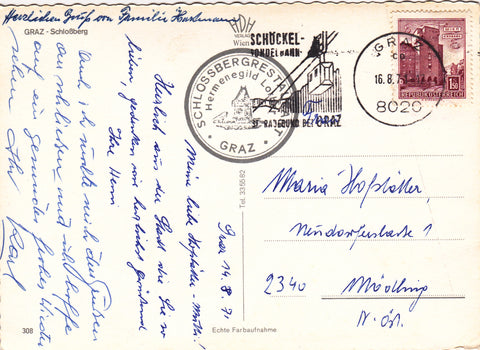 Herzlichen Gruß von Familie
GRAZ - Schloßberg
HDH
VERLAG
Wien
SCHÖCKEL-
GONDELBAHN
ST. RADEGUND BEI GRAZ
SCHLOSSBERGRESTAURANT
Hermenegild
GRAZ
GRAZ
16.8.71
8020
WIEN
ERDBERG
1.50
REPUBLIK ÖSTERREICH
Graz 14.8.71
Meine liebe Hofstätter-Mutter!
Herzlich aus der Stadt die Sie so
lieben, gedenken wir
Ihre Henni
Auch ich möchte mich den Grüßen
anschließen und ich hoffe
auf ein gesundes frohes Wieder
sehen Ihr Karl
Tel. 335582
Maria Hofstätter
Neudorferstraße 1
2340 Mödling
N. Öst.
308
Echte Farbaufnahme